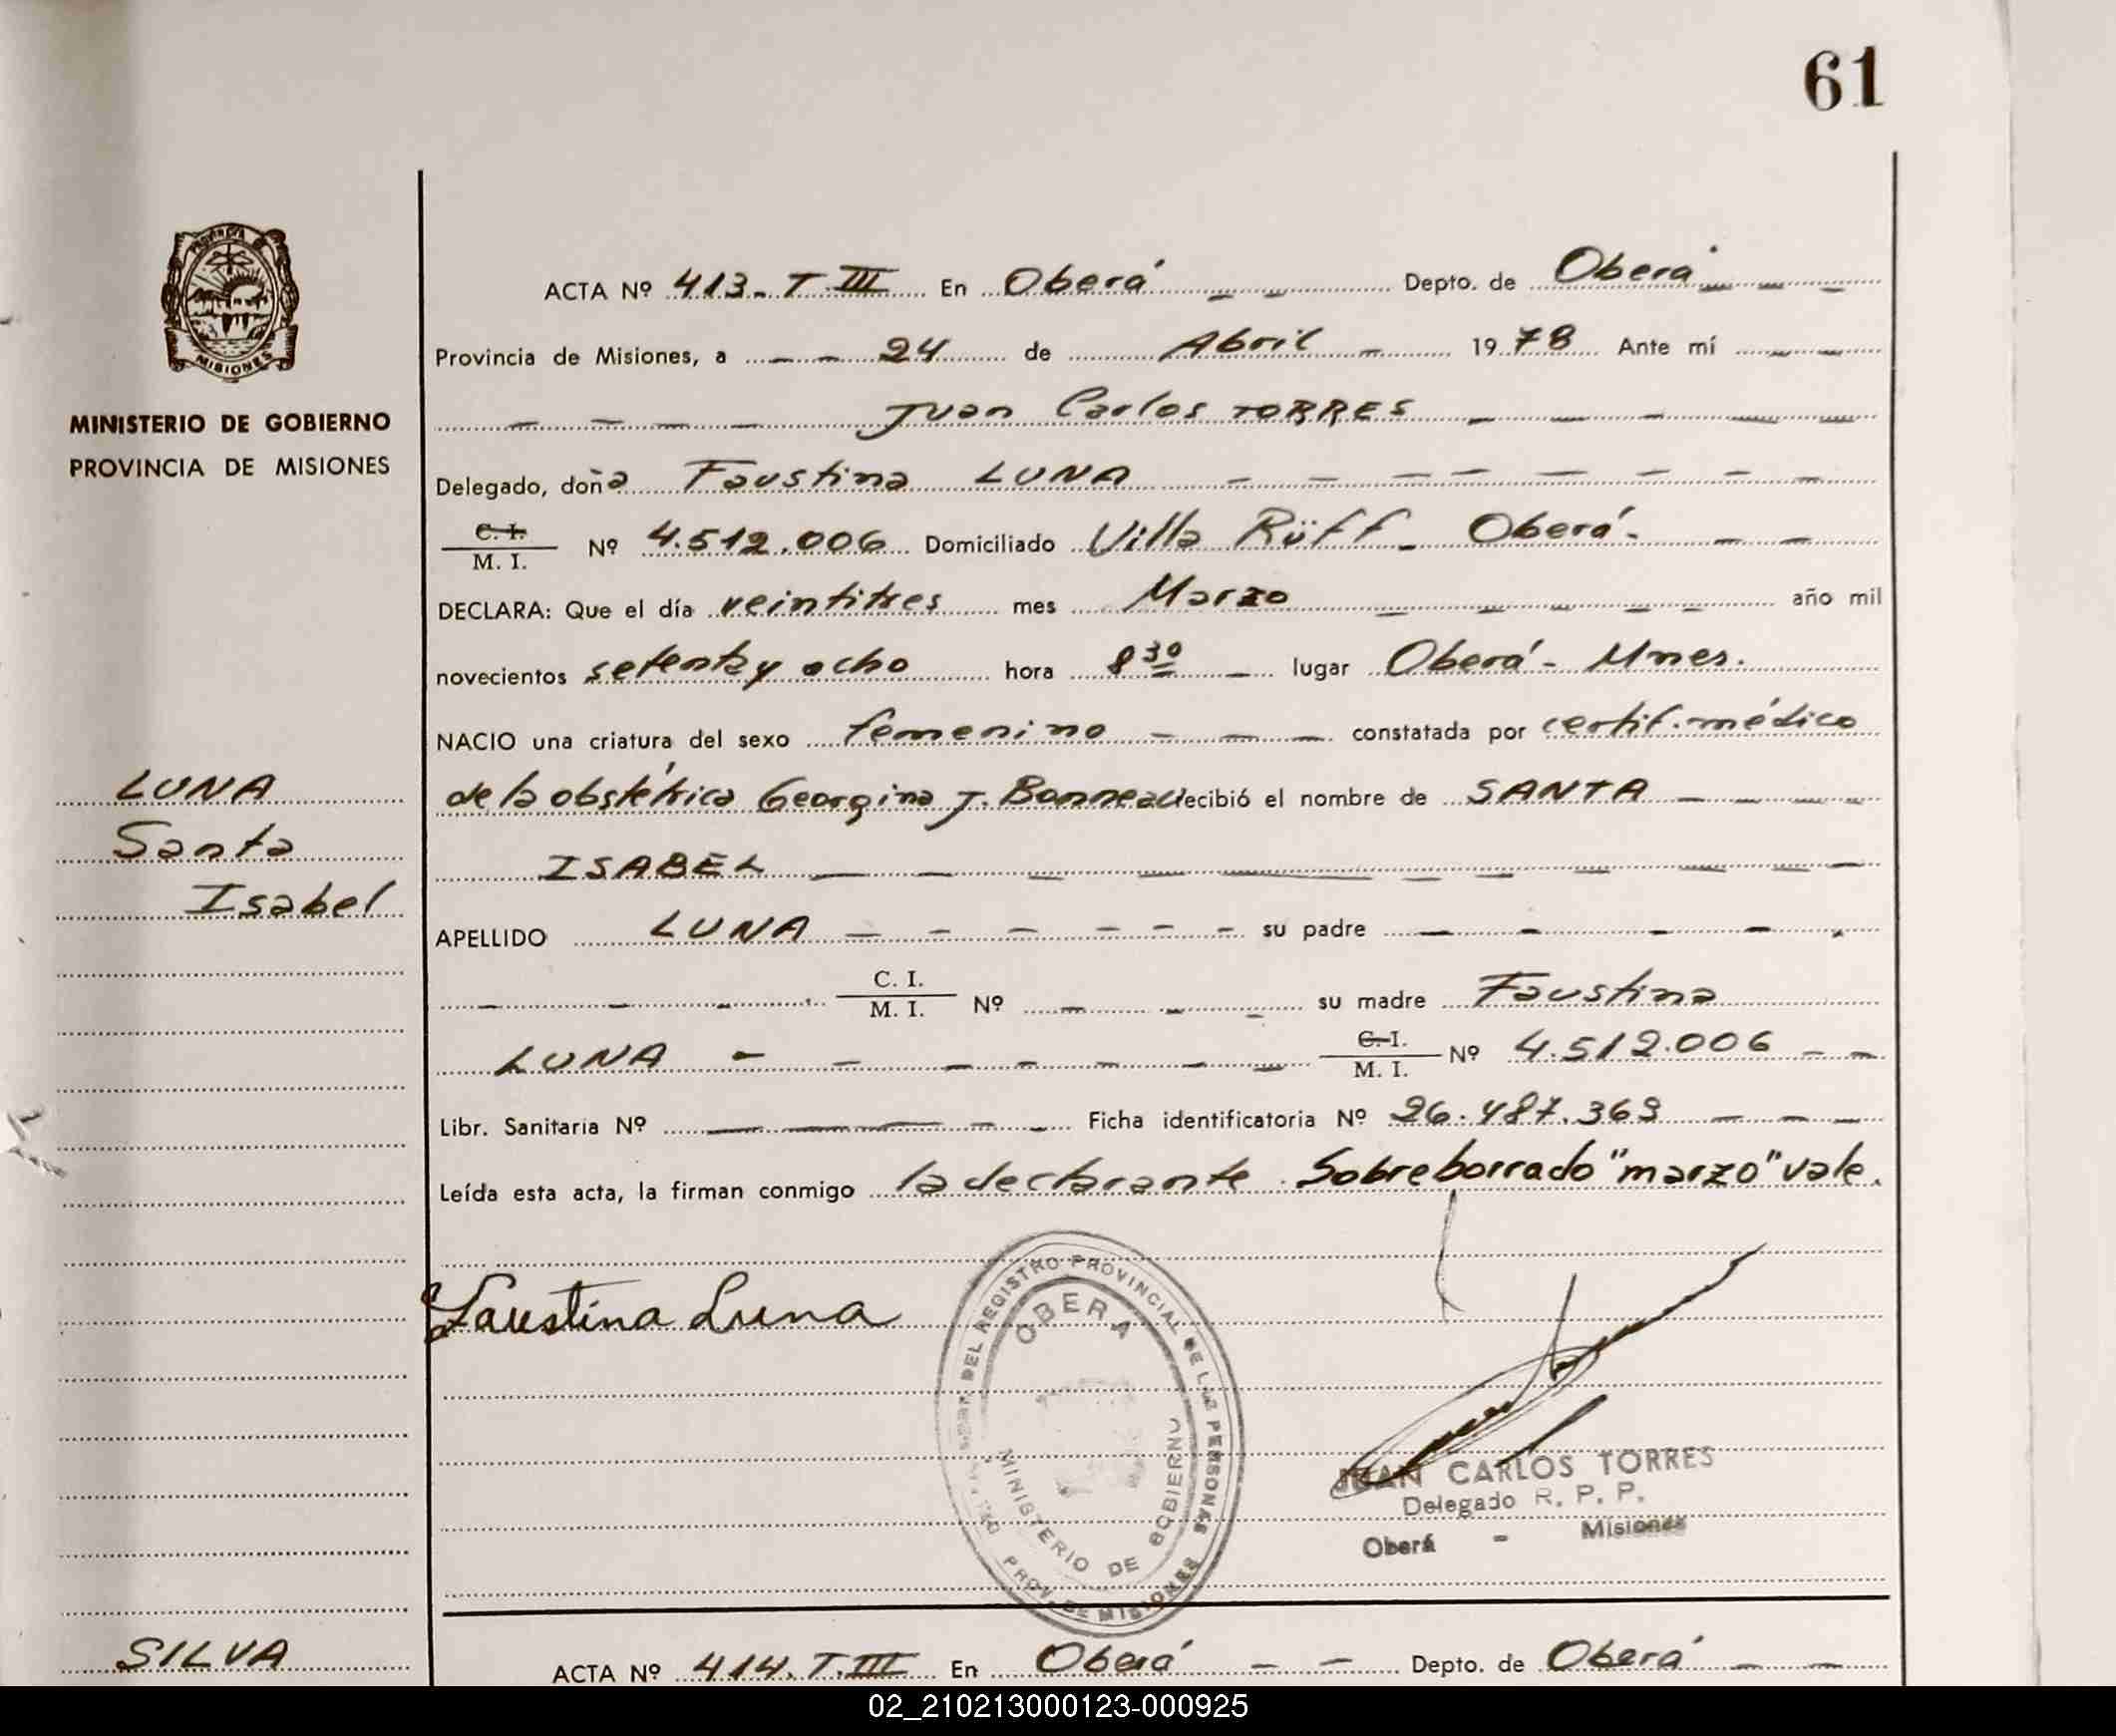 61
PROVINCIA DE
MISIONES
MINISTERIO DE GOBIERNO
PROVINCIA DE MISIONES
ACTA Nº 413- T. III En Oberá Depto. de Oberá
Provincia de Misiones, a 24 de Abril 1978 Ante mí
Juan Carlos TORRES
Delegado, doña Faustina LUNA
C. I.
M. I. Nº 4.512.006 Domiciliado Villa Rüff - Oberá-
DECLARA: Que el día veintitres mes Marzo año mil
novecientos setenta y ocho hora 8 30 lugar Oberá - Mnes.
NACIO una criatura del sexo femenino constatada por certif. médico
de la obstétrica Georgina J. Bonneau recibió el nombre de SANTA
ISABEL
APELLIDO LUNA su padre
C. I.
M. I. Nº su madre Faustina
LUNA C. I.
M. I. Nº 4.512.006
Libr. Sanitaria Nº Ficha identificatoria Nº 26.487.369
Leída esta acta, la firman conmigo la declarante. Sobreborrado "marzo" vale.
LUNA
Santa
Isabel
Faustina Luna
DEL REGISTRO PROVINCIAL DE LAS PERSONAS
OBERA
MINISTERIO DE GOBIERNO
PROV. DE MISIONES
JUAN CARLOS TORRES
Delegado R. P. P.
Oberá - Misiones
SILVA
ACTA Nº 414. T. III En Oberá Depto. de Oberá
02_210213000123-000925